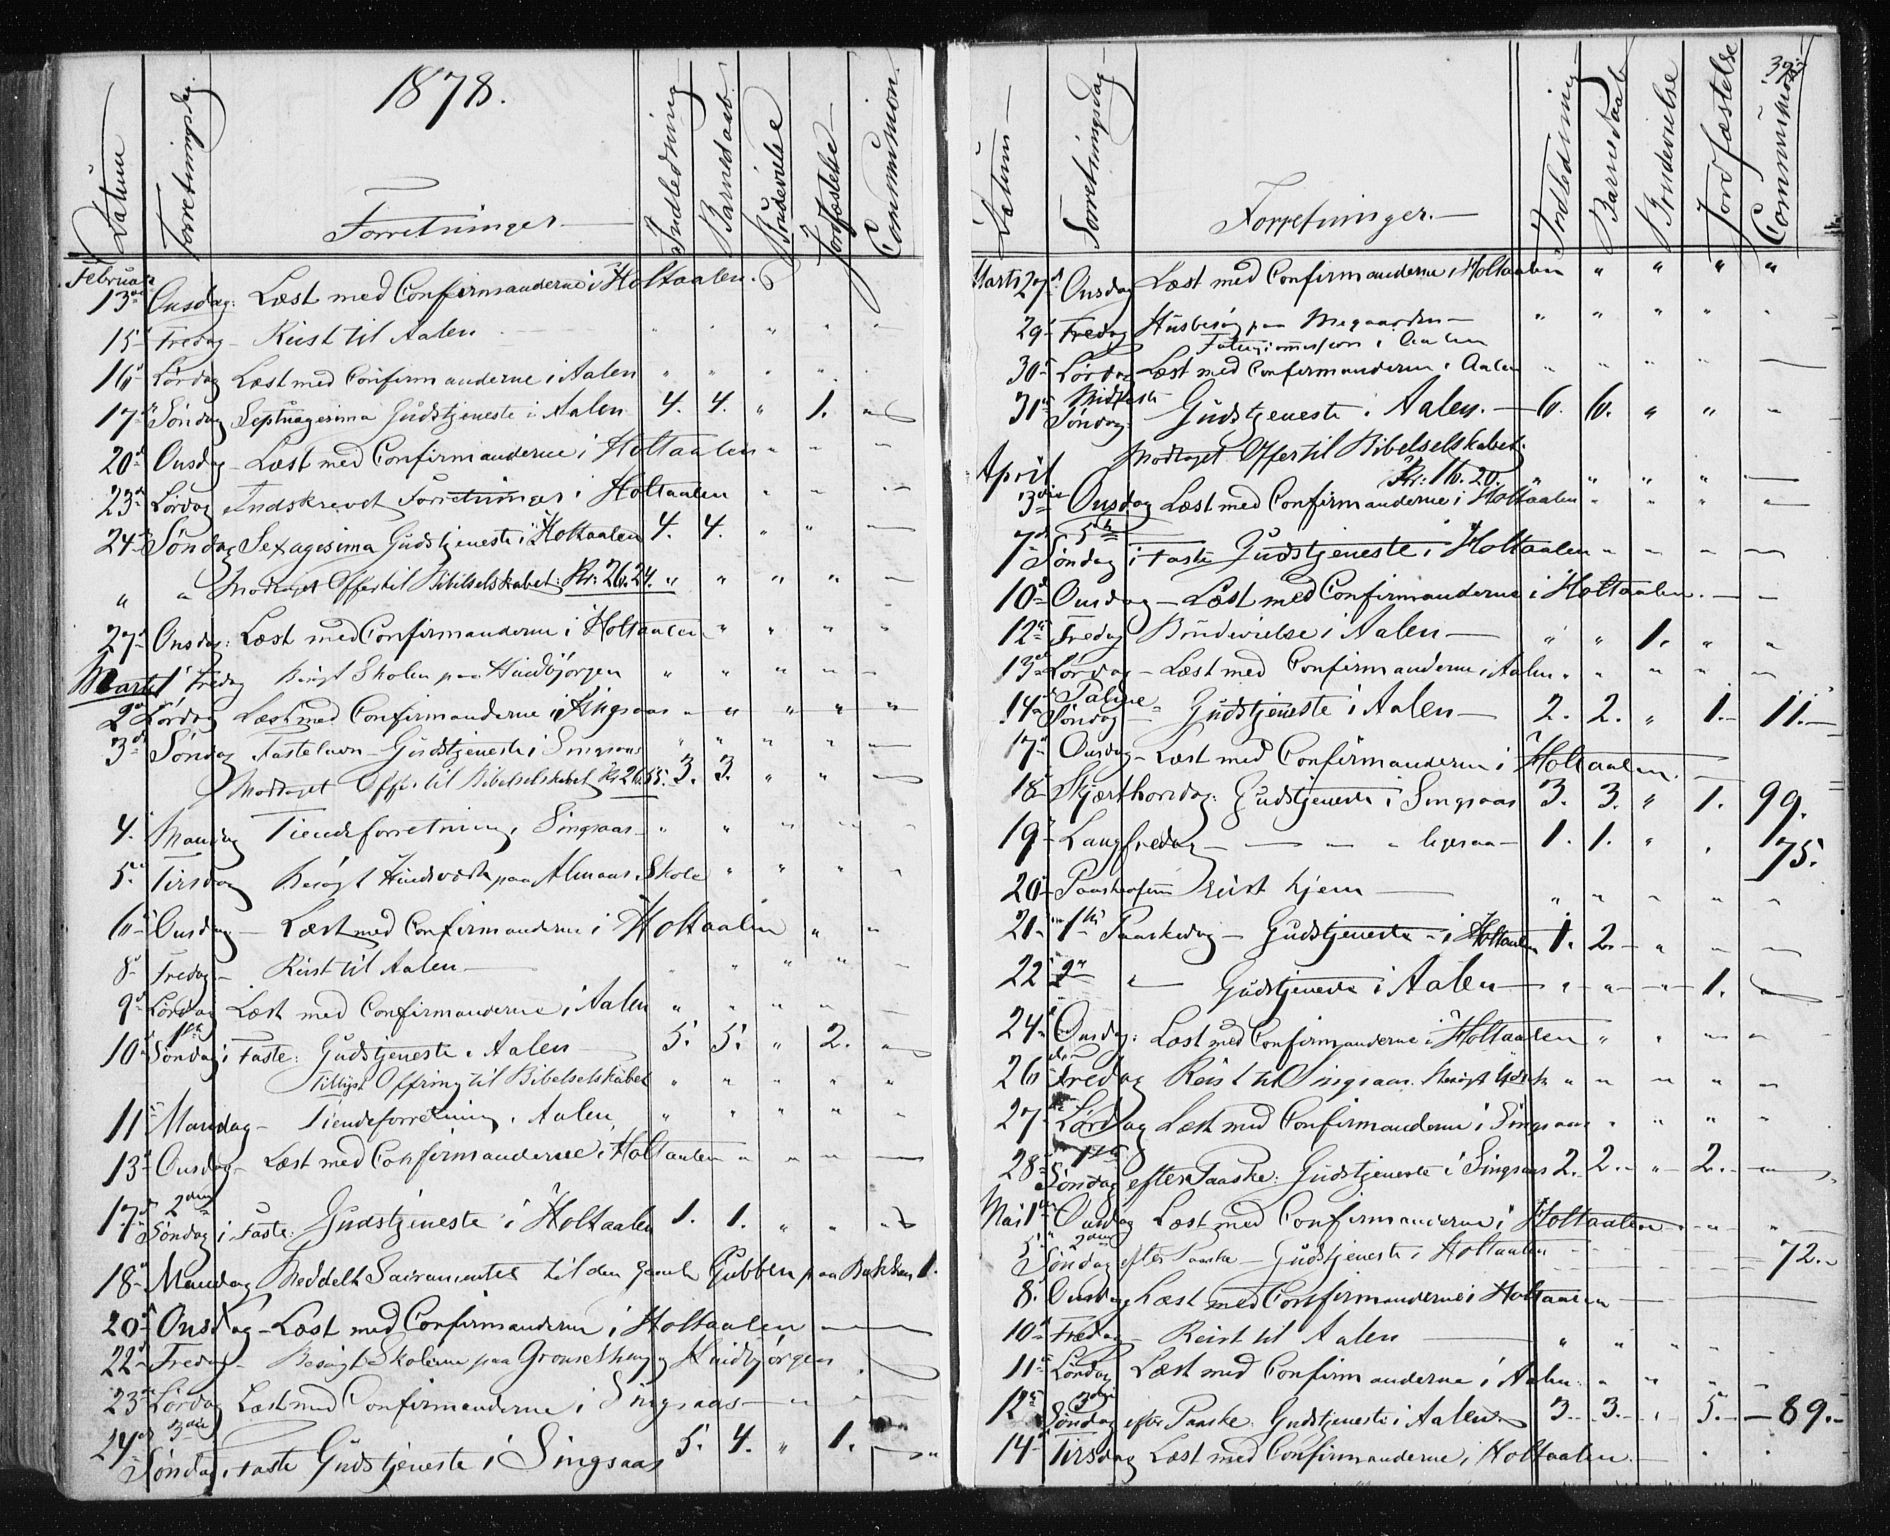 1878.
Datum Forretningsdag Forretninger Indledning Barnedaab Brudevielse Jordfæstelse Communion.
Februar
13de Onsdag: Læst med Confirmanderne i Holtaalen.
15 Fredag - Reist til Aalen " " " " "
16 Lørdag Læst med Confirmanderne i Aalen " " " "
17 Søndag Septuagesima Gudstjeneste i Aalen 4. 4. " 1. "
20 Onsdag - Læst med Confirmanderne i Holtaalen " "
23 Lørdag Indskrevet Forretninger i Holtaalen " " "
24 Søndag Sexagesima Gudstjeneste i Holtaalen 4. 4. " " -
" " Modtaget Offer til Bibelselskabet: Kr: 26.24. " " " " -
27 Onsdag: Læst med Confirmanderne i Holtaalen " " " "
Marts 1 Fredag Besøgt Skolen paa Hindbjørgen " " " " "
2 Lørdag Læst med Confirmanderne i Singsaas " " " " "
3 Søndag Fastelavn - Gudstjeneste i Singsaas " " " " "
Modtaget Offer til Bibelselskabet Kr 26.55. 3. 3. " " -
4. Mandag Tiendeforretning i Singsaas - " " " " "
5. Tirsdag Besøgt paa Almaas Skole " " " "
6 Onsdag - Læst med Confirmanderne i Holtaalen " "
8 Fredag - Reist til Aalen - " " " " -
9 Lørdag Læst med Confirmanderne i Aalen " " " " -
10 1ste Søndag i Faste: Gudstjeneste i Aalen 5. 5. " 2. "
Tillyst Offring til Bibelselskabet " " " " "
11 Mandag - Tiendeforretning i Aalen " " " " "
13 Onsdag - Læst med Confirmanderne i Holtaalen " " " -
17 2den Søndag i Faste: Gudstjeneste i Holtaalen 1. 1. " " "
18 Mandag Meddelt Sacramentet til den gamle Gubben paa Bakken 1.
20 Onsdag - Læst med Confirmanderne i Holtaalen -
22 Fredag - Besøgt Skolerne paa og Hindbjørgen
23 Lørdag Læst med Confirmanderne i Singsaas - " "
24 3die Søndag i Faste Gudstjeneste i Singsaas 5. 4. " 1. -
Datum - Forretningsdag - Forretninger. - Indledning Barnedaab Brudevielse Jordfæstelse Communion
Marts 27 Onsdag Læst med Confirmanderne i Holtaalen " " " "
29 Fredag Husbesøg paa - " " " " "
i Aalen
30 Lørdag Læst med Confirmanderne i Aalen " " " " -
31 Midfaste Søndag: Gudstjeneste i Aalen. - 6. 6. " " "
Modtaget Offer til Bibelselskabet:
Kr: 16.20. " " " " -
April
3die Onsdag Læst med Confirmanderne i Holtaalen " " " "
7 5te Søndag i Faste Gudstjeneste i Holtaalen " " " -
10 Onsdag - Læst med Confirmanderne i Holtaalen. - -
12 Fredag Brudevielse i Aalen - " " 1. " "
13 Lørdag - Læst med Confirmanderne i Aalen " " " " "
14 Palme Søndag - Gudstjeneste i Aalen - 2. 2. " 1. - 11. -
17 Onsdag - Læst med Confirmanderne i Holtaalen. -
18 Skjærthorsdag: Gudstjeneste i Singsaas 3. 3. " 1. 99.
19 Langfredag - - - " ligesaa - 1. 1. " . 75.
20 Paaskeaften reist hjem - " " " " "
21 1ste Paaskedag - Gudstjeneste - i Holtaalen 1. 2. - " " -
22 2den " Gudstjeneste i Aalen - " " " 1. "
24 Onsdag: Læst med Confirmanderne i Holtaalen " " " "
26 Fredag Reist til Singsaas. Besøgt " " " " "
27 Lørdag Læst med Confirmanderne i Singsaas " " " "
28 1ste Søndag efter Paaske: Gudstjeneste i Singsaas 2. 2. - " 2. - "
Mai 1 Onsdag Læst med Confirmanderne i Holtaalen - " "
5 2den Søndag efter Paaske - Gudstjeneste i Holtaalen - - - - 72. -
8. Onsdag Læst med Confirmanderne i Holtaalen -
10 Fredag - Reist til Aalen - " " " " "
11 Lørdag Læst med Confirmanderne i Aalen " " " " "
12 3die Søndag efter Paaske. Gudstjeneste i Aalen 3. 3. - " 5. - 89. -
14 Tirsdag Læst med Confirmanderne i Holtaalen. - . .